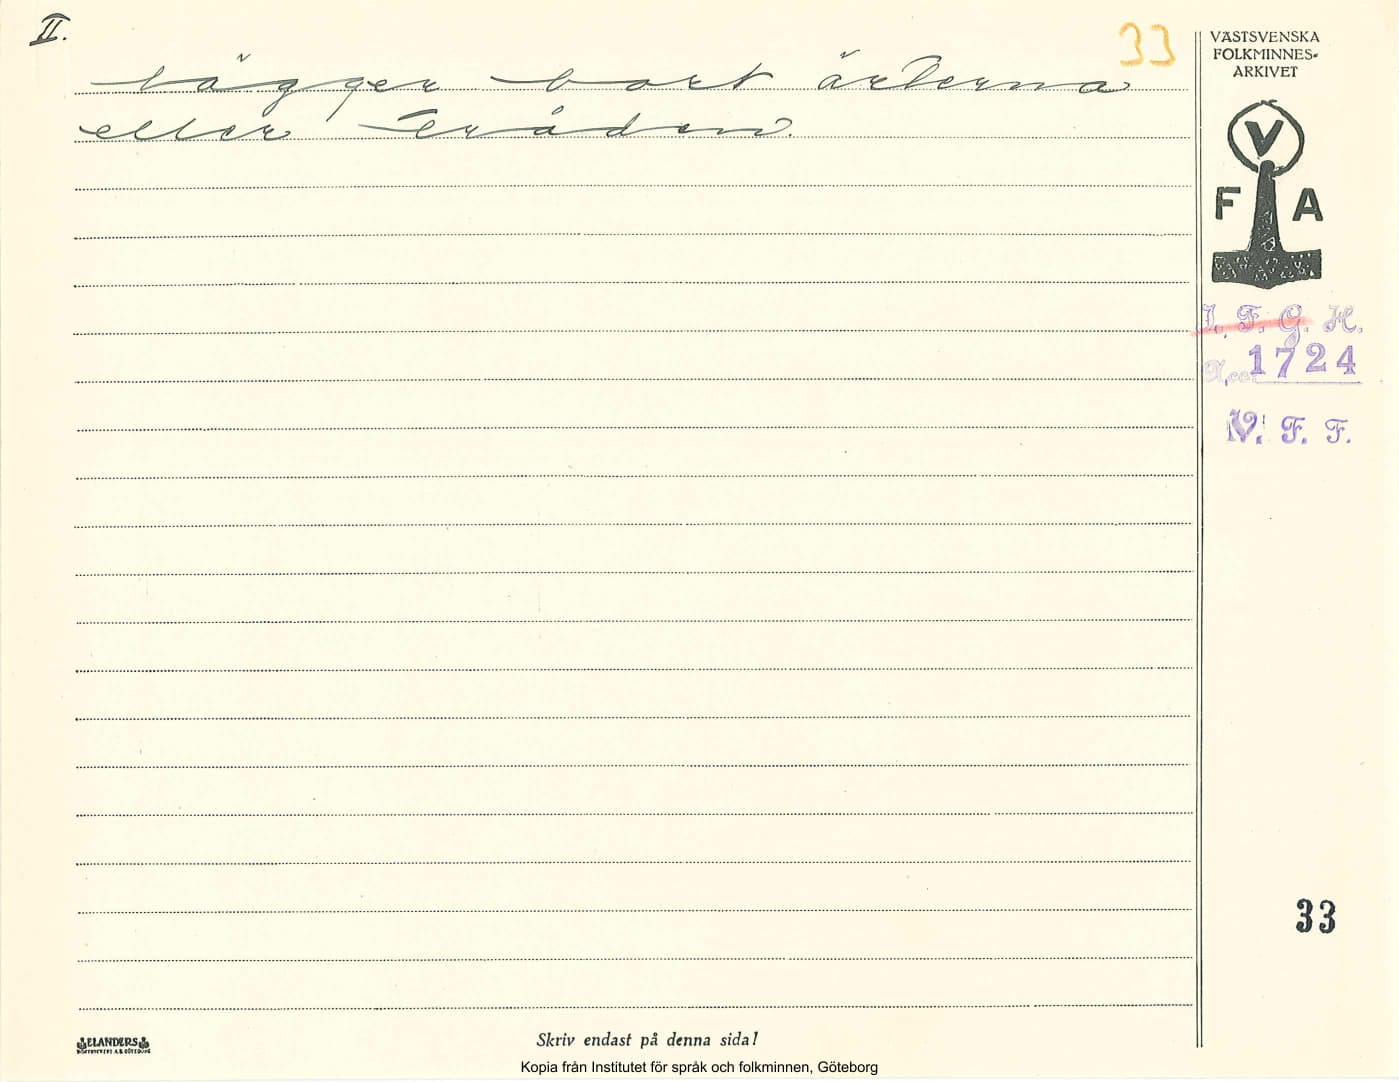 II.
33
VÄSTSVENSKA
FOLKMINNES-
ARKIVET
lägger bort ärterna
eller tråden.
V
F A
I. F. G. H.
Acc. 1724
V. F. F.
33
ELANDERS
BOKTRYCKERI A.B. GÖTEBORG
Skriv endast på denna sida!
Kopia från Institutet för språk och folkminnen, Göteborg